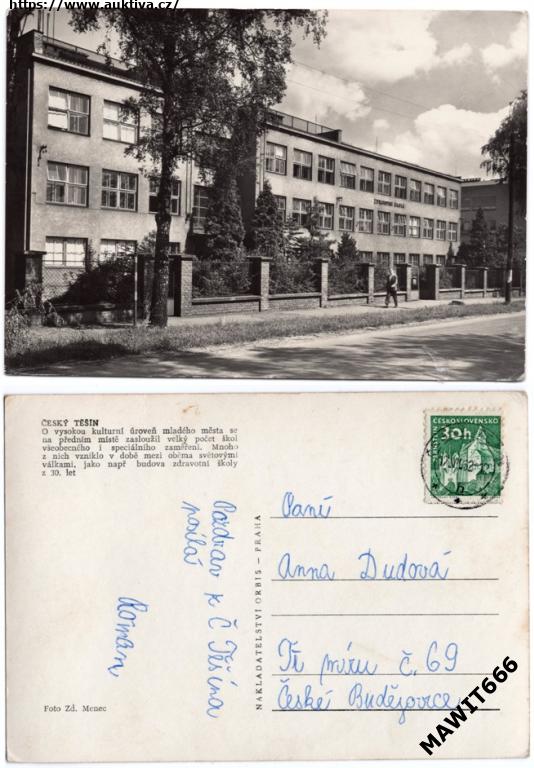 https://www.auktiva.cz/
ČESKÝ TĚŠÍN
O vysokou kulturní úroveň mladého města se
na předním místě zasloužil velký počet škol
všeobecného i speciálního zaměření. Mnoho
z nich vzniklo v době mezi oběma světovými
válkami, jako např budova zdravotní školy
z 30. let
Pozdrav k Č Těšína
posílá
Roman
Foto Zd. Menec
NAKLADATELSTVÍ ORBIS – PRAHA
ČESKOSLOVENSKO
30h
Paní
Anna Dudová
Tř míru č. 69
České Budějovice
MAWIT666